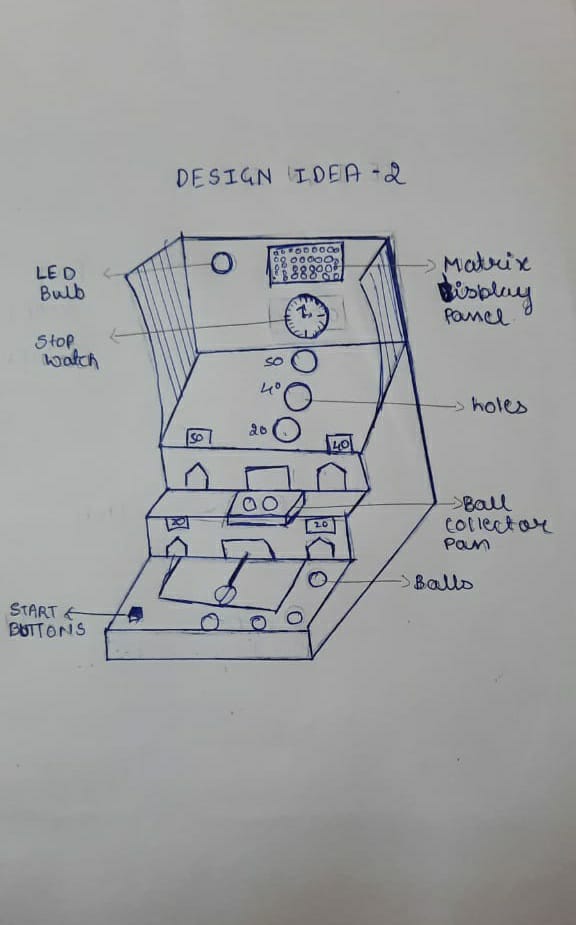 DESIGN IDEA - 2
LED
Bulb
Matrix
Display
Panel
Stop
Watch
50
40
holes
20
50
40
Ball
collector
Pan
20
20
Balls
START
BUTTONS